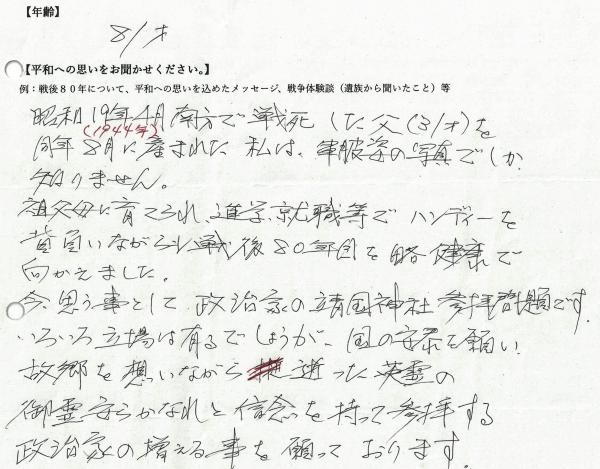 【年齢】
81才
【平和への思いをお聞かせください。】
例：戦後８０年について、平和への思いを込めたメッセージ、戦争体験談（遺族から聞いたこと）等
昭和19年4月南方で戦死した父(31才)を
(1944年)
同年8月に産まれた私は、軍服姿の写真でしか
知りません。
祖父母に育てられ、進学、就職等でハンディーを
背負いながらも戦後80年目を略健康で
向かえました。
今、思う事として政治家の靖国神社参拝問題です。
いろいろ立場は有るでしょうが、国の安泰を願い
故郷を想いながら逝った英霊の
御霊安らかなれと信念を持って参拝する
政治家の増える事を願っております。